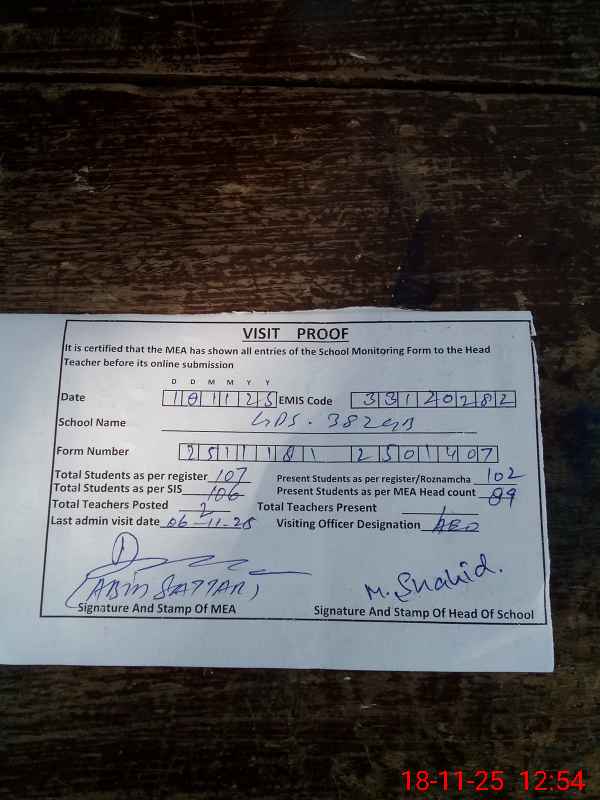 VISIT PROOF
It is certified that the MEA has shown all entries of the School Monitoring Form to the Head
Teacher before its online submission
D D M M Y Y
Date 181125 EMIS Code 33120282
School Name GPS. 382GB
Form Number 2511181 2501407
Total Students as per register 107 Present Students as per register/Roznamcha 102
Total Students as per SIS 106 Present Students as per MEA Head count 89
Total Teachers Posted 2 Total Teachers Present 1
Last admin visit date 06-11-25 Visiting Officer Designation AEO
(ABID SATTAR) M. Shahid.
Signature And Stamp Of MEA Signature And Stamp Of Head Of School
18-11-25 12:54